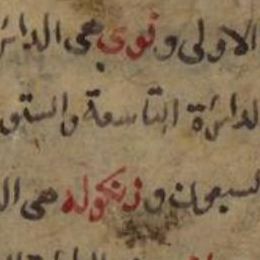 الاولى ونوى هى الدائر
لدائرة التاسعة والستو
لسبعون وزنكوله هى ال